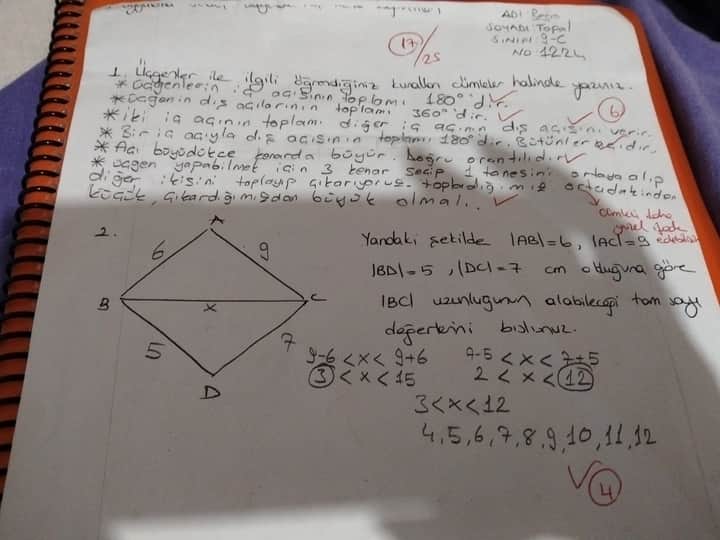 ADI Begüm
SOYADI Topal
SINIFI 9-C
NO 1224
17/25
1. Üçgenler ile ilgili öğrendiğiniz kuralları cümleler halinde yazınız.
* Üçgenlerin iç açısının toplamı 180° dir.
* Üçgenin dış açılarının toplamı 360° dir.
6
* İki iç açının toplamı diğer iç açının dış açısını verir.
* Bir iç açıyla dış açısının toplamı 180° dir. Bütünler açıdır.
* Açı büyüdükçe kenarda büyür. Doğru orantılıdır.
* Üçgen yapabilmek için 3 kenar seçip 1 tanesini ortaya alıp
diğer ikisini toplayıp çıkarıyoruz. topladığımız ortadakinden
küçük, çıkardığımızdan büyük olmalı.
cümleyi daha
güzel ifade
edebilirsin
2.
A
6 9
B x C
5 7
D
Yandaki şekilde |AB|=6, |AC|=9
|BD|=5, |DC|=7 cm olduğuna göre
|BC| uzunluğunun alabileceği tam sayı
değerlerini bulunuz.
9-6 < x < 9+6 7-5 < x < 7+5
3 < x < 15 2 < x < 12
3 < x < 12
4, 5, 6, 7, 8, 9, 10, 11, 12
4